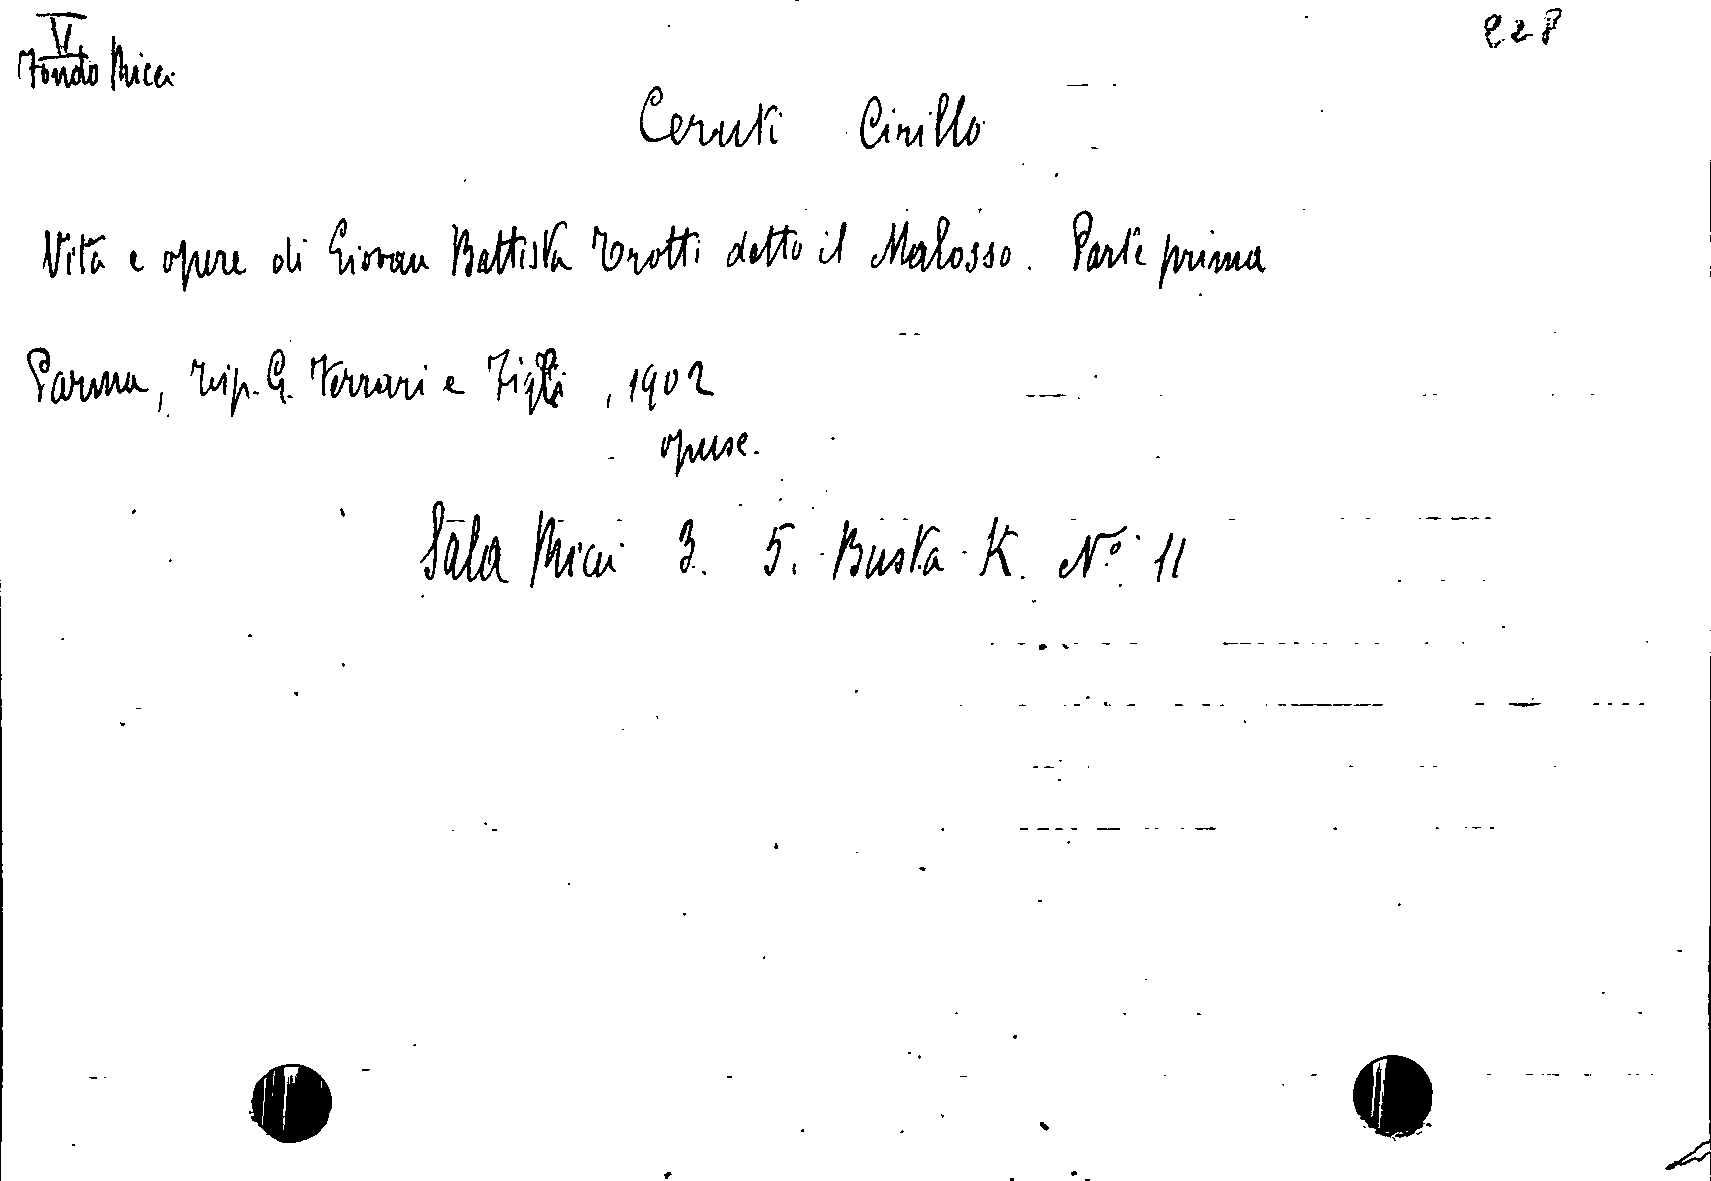 V
Fondo Ricci
228
Ceruti Cirillo
Vita e opere di Giovan Battista Trotti detto il Malosso. Parte prima
Parma, Tip. G. Ferrari e Figli, 1902
opusc.
Sala Ricci 3. 5. Busta K. N° 11